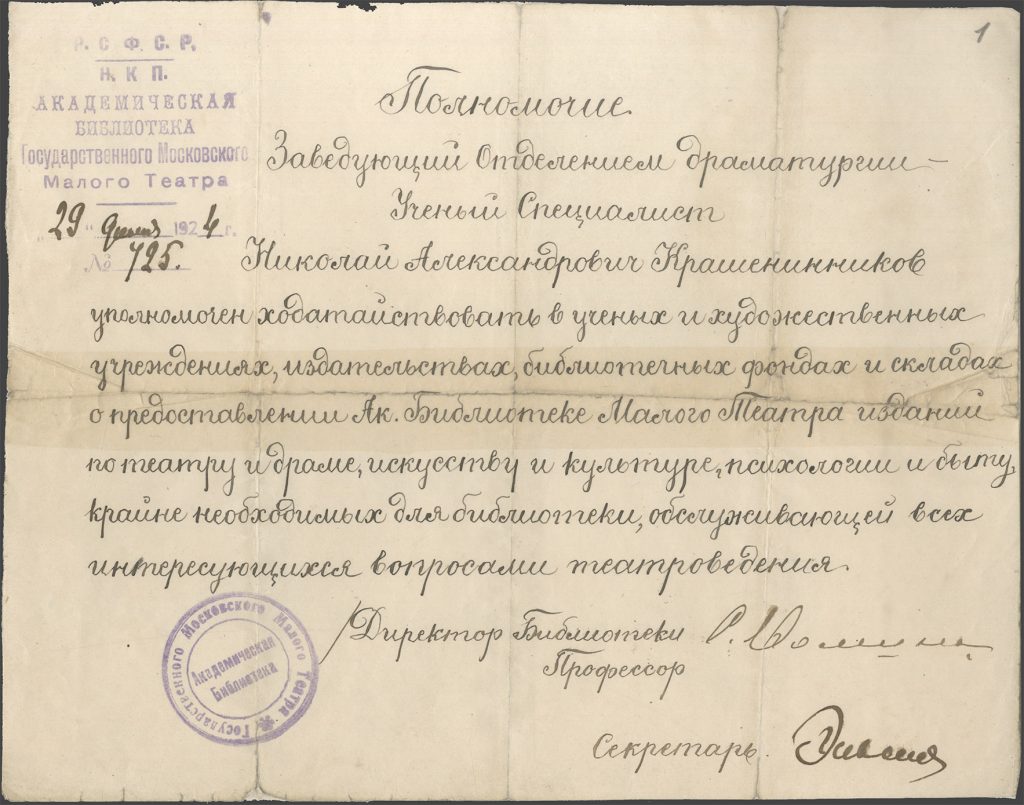 1
Р. С. Ф. С. Р.
Н. К. П.
АКАДЕМИЧЕСКАЯ
БИБЛИОТЕКА
Государственного Московского
Малого Театра
„29“ 1924 г.
№ 725.
Полномочие
Заведующий Отделением драматургии –
Ученый Специалист
Николай Александрович Крашенинников
уполномочен ходатайствовать в ученых и художественных
учреждениях, издательствах, библиотечных фондах и складах
о предоставлении Ак. Библиотеке Малого Театра изданий
по театру и драме, искусству и культуре, психологии и быту,
крайне необходимых для библиотеки, обслуживающей всех
интересующихся вопросами театроведения.
Директор Библиотеки
Профессор
Секретарь
Государственного Московского Малого Театра
Академическая
Библиотека